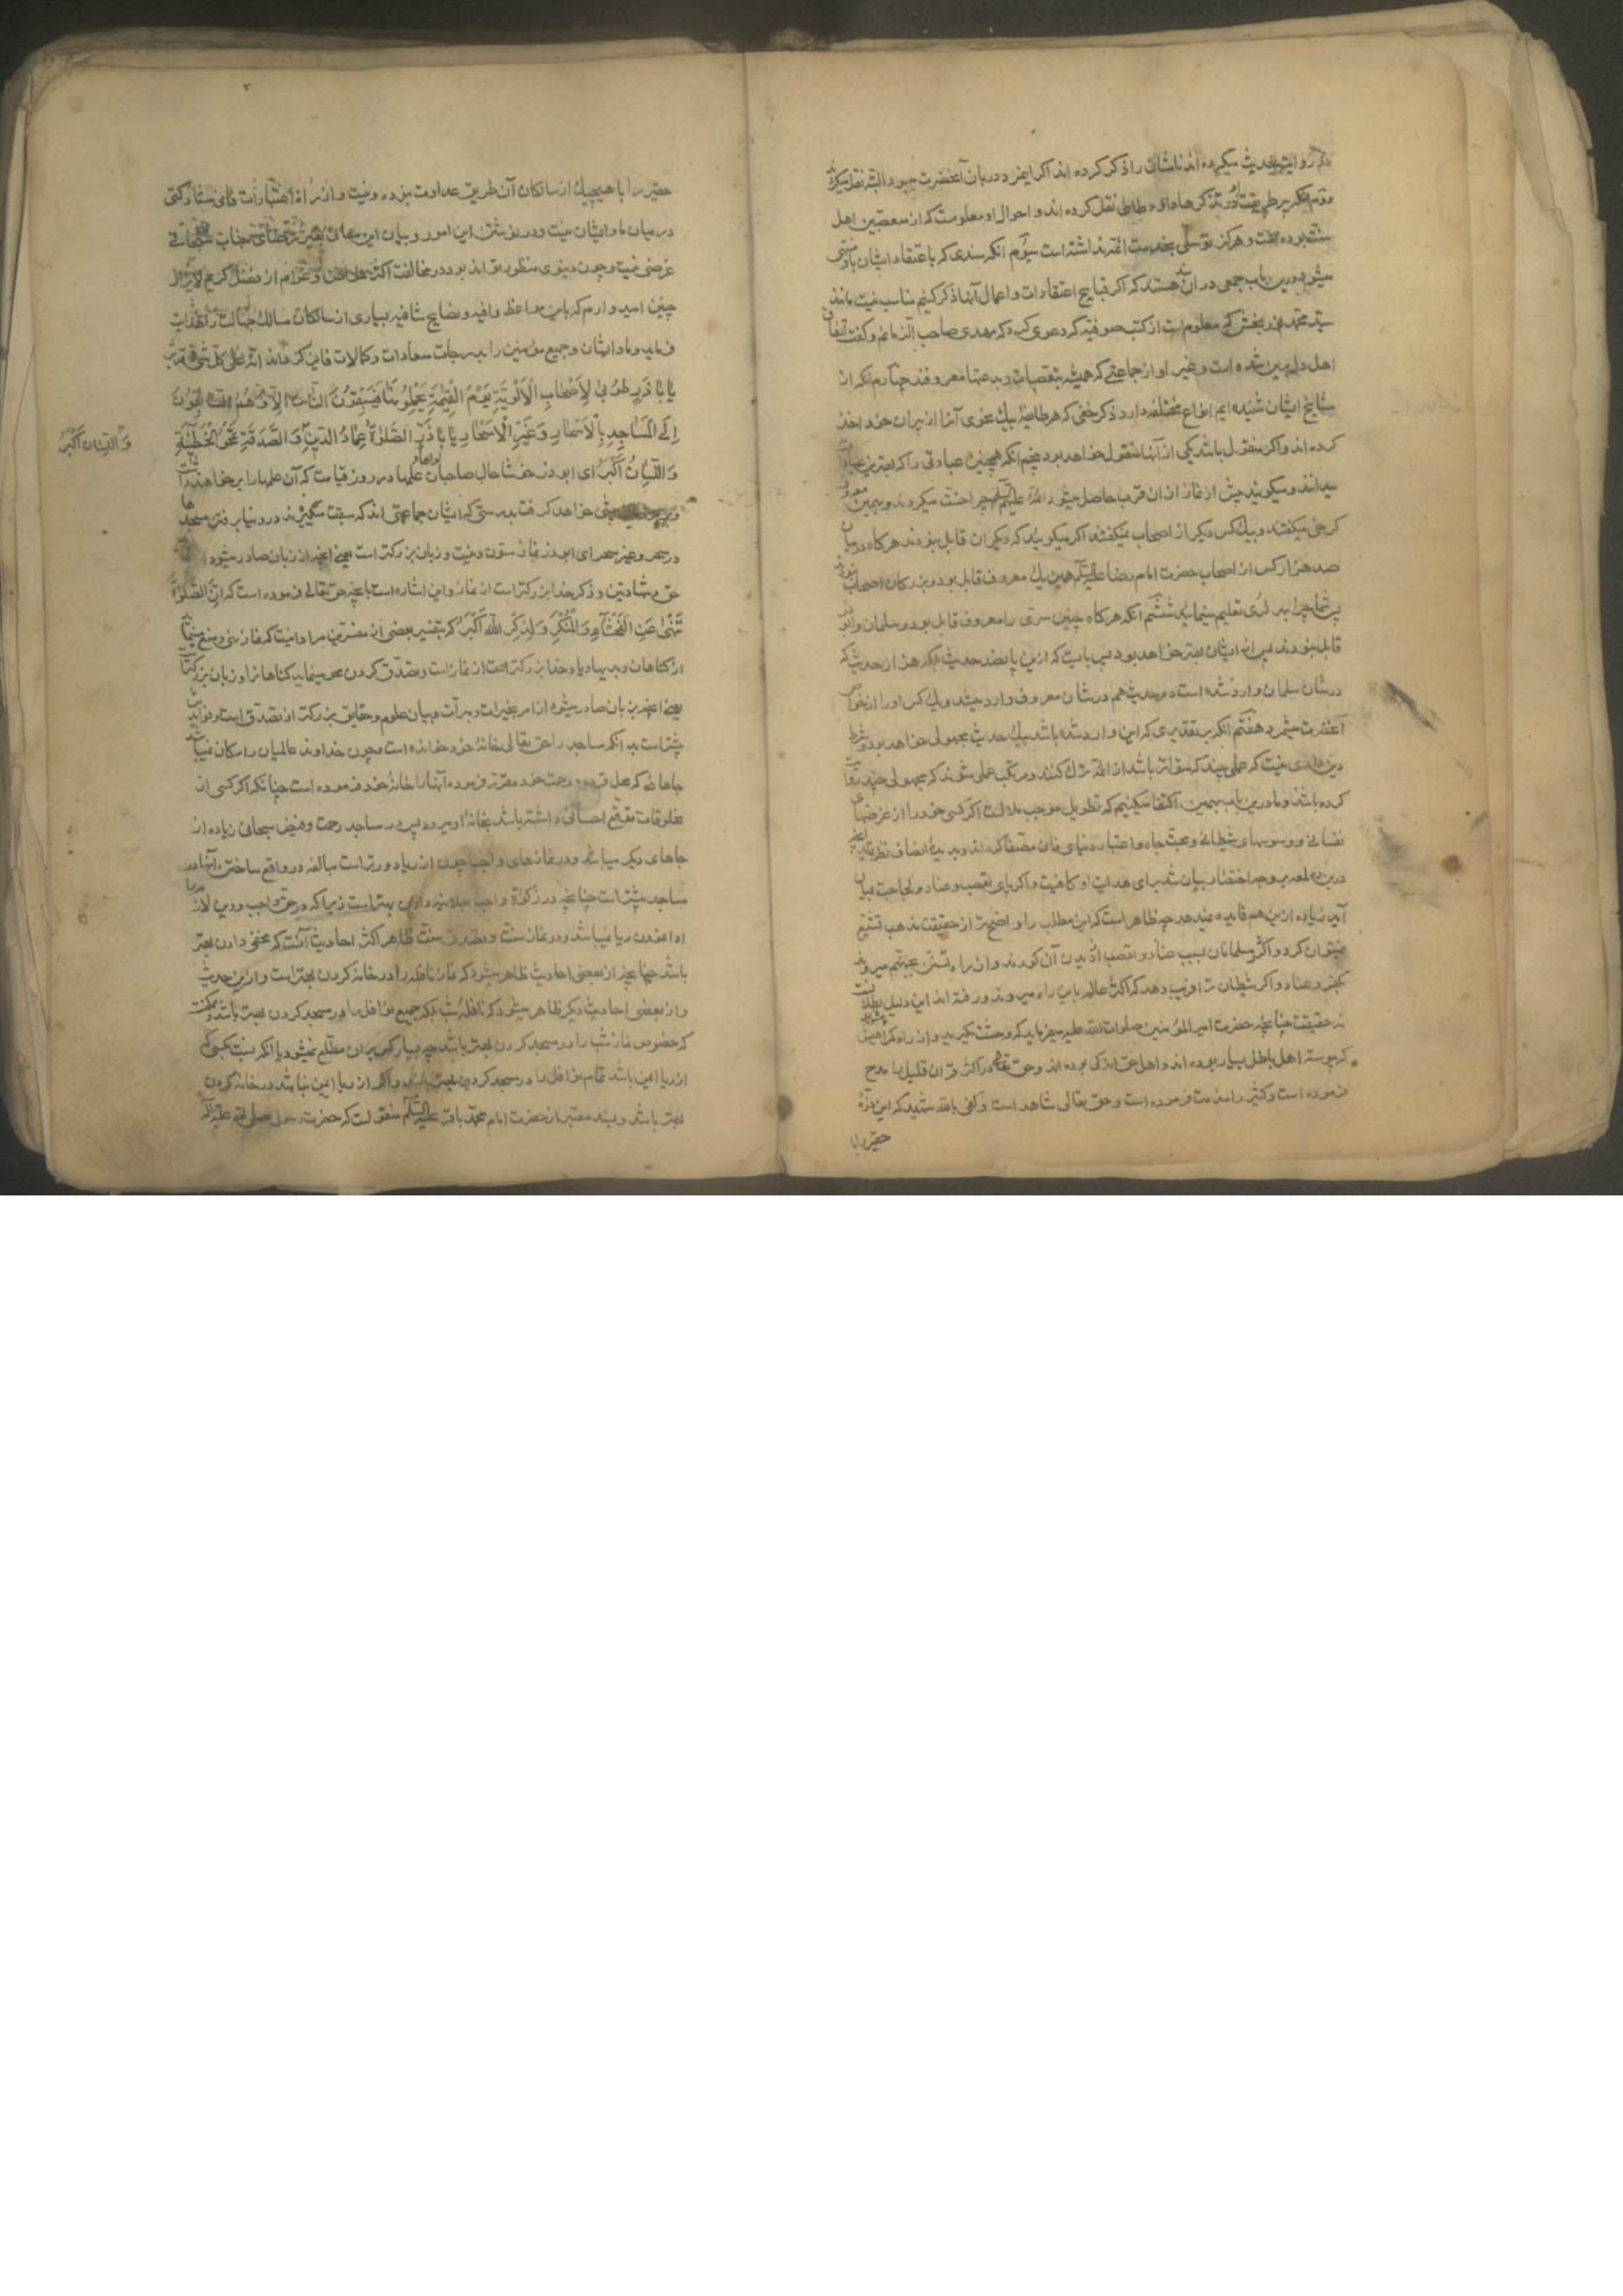 روایت حدیث میکرده اند نامشان را ذکر کرده اند اکر این مرد دربان آنحضرت میبود البته نقل میکردند
دوم آنکه بر طریقت او در تذکرها داود طائی نقل کرده اند و احوال او معلومست که از متعصبین اهل
سنت بوده است و هرکز توسلی بخدمت ائمه نداشته است سیوم آنکه سندی که باعتقاد ایشان باو منتهی
میشود درین باب جمعی در آن سند هستند که اکر قبایح اعتقادات و اعمال آنها ذکر کنیم مناسب نیست مانند
سید محمد نوربخش که معلوم است از کتب صوفیه که دعوی کرد که مهدی صاحب الزمانم و کفت اتفاق
اهل دل برین شده است و غیر او از جماعتی که همیشه بتعصبات و بدعتها معروفند چهارم آنکه از
مشایخ ایشان شنیده ایم انواع مختلفه دارد ذکر خفی که هر طایفه بیک نحوی آنرا از پیران خود اخذ
کرده اند و اکر منقول باشد یکی از آنها منقول خواهد بود پنجم آنکه همچنین عبادتی را که بهترین عبادات
میدانند و میکویند بیش از نماز از آن قرب حاصل میشود ائمه علیهم السلام چرا خست میکردند و بهمین معروف
کرخی میکفتند و بیک کس دیکر از اصحاب نمیکفتند اکر میکویند که دیکران قابل نبودند هرکاه در میان
صد هزار کس از اصحاب حضرت امام رضا علیه السلام همین یک معروف قابل بود و بزرکان اصحاب نبودند
پس شما چرا بهر لُری تعلیم مینمایید ششم آنکه هرکاه چنین سرّی را معروف قابل بود و سلمان و ابوذر
قابل نبودند پس از ایشان بهتر خواهد بود پس بایست که ازین پانصد حدیث بلکه هزار حدیث که
در شان سلمان وارد شده است دو حدیث هم در شان معروف وارد میشد و یک کس او را از خواص
آنحضرت میشمرد هفتم آنکه بر تقدیری که این وارد شده باشد بیک حدیث مجهولی خواهد بود و شرط
دین داری نیست که عملی چند که متواتر باشد از ائمه ترک کنند و مرتکب عملی شوند که مجهولی چند نقل
کرده باشند و ما درین باب بهمین اکتفا میکنیم که تطویل موجب ملالت اکر کسی خود را از غرضهای
نفسانی و وسوسهای شیطانی و محبت جاه و اعتبار دنیای فانی مصفا کرداند و بدیدهٔ انصاف نظر نماید آنچه
درین لمعه بر وجه اختصار بیان شد برای هدایت او کافیست و اکر پای تعصب و عناد و لجاجت بمیان
آید زیاده ازین هم فایده نمیدهد چه ظاهر است که این مطلب را واضح تر از حقیقت مذهب تشیع
نمیتوان کرد و اکثر مسلمانان بسبب عناد و تعصب از دیدن آن کورند و از راه تسنن بجهنم میروند
بکفر و عناد و اکر شیطان ترا فریب دهد که اکثر عالم باین راه میروند و رفته اند این دلیل بطلانست
نه حقیقت چنانچه حضرت امیر المؤمنین صلوات الله علیه میفرماید که وحشت مکیرید از راه
که پیوسته اهل باطل بسیار بوده اند و اهل حق اندکی بوده اند و حق تعالی در اکثر قرآن قلیل را مدح
فرموده است و کثیر را مذمت فرموده است و حق تعالی شاهد است وکفی بالله شهید که این ذره
حقیر را
حقیر را با هیچیک از سالکان آن طریق عداوت نبوده و نیست و از راه اعتبارات فانی
درمیان ما و ایشان نیست و در نوشتن این امور و بیان این معانی بغیر رضای جناب سبحانی
غرضی نیست و چون دنیوی منظور تواند بود در مخالفت اکثر خلایق و عوام از فضل کریم لایزال
چنین امید وارم که باین مواعظ وافیه و نصایح شافیه بسیاری از سالکان مسالک جهالت را هدایت
فرماید و ما و ایشان و جمیع مؤمنین را بدرجات سعادات و کمالات فایز کرداند انه علی کل شیء قدیر
یا بَا ذَرٍّ طُوبى لِأَصْحَابِ الْأَلْوِیَةِ یَوْمَ الْقِیٰمَةِ یَحْمِلُونَهَا فَیَسْبِقُونَ النَّاسَ اِلَى الْجَنَّةِ اَلَا وَ هُمُ السَّابِقُونَ
اِلَى الْمَسَاجِدِ بِالْاَسْحَارِ وَ غَیْرِ الْاَسْحَارِ یا بَا ذَرٍّ الصَّلٰوةُ عِمَادُ الدِّینِ وَ الصَّدَقَةُ تَمْحُو الْخَطِیئَةَ
وَ اللِّسَانُ اَکْبَرُ
وَ اللِّسَانُ اَکْبَرُ ای ابوذر خوشا حال صاحبان علمها در روز قیامت که آن علمها را برخواهند داشت
خواهد کرفت بدرستی که ایشان جماعتی اند که سبقت میکیرند در دنیا برفتن مسجدها
در سحر و غیر سحر ای ابوذر نماز ستون دینست و زبان بزرکتر است یعنی آنچه از زبان صادر میشود از
حق و شهادتین و ذکر خدا بزرکتر است از نماز و این اشاره است بآنچه حق تعالی فرموده است که اِنَّ الصَّلٰوةَ
تَنْهٰى عَنِ الْفَحْشَآءِ وَ الْمُنْکَرِ وَ لَذِکْرُ اللّٰهِ اَکْبَرُ که بتفسیر بعضی از مفسرین مراد اینست که نماز نهی و منع مینماید
از کناهان و بدیها و یاد خدا بزرکتر است از نماز است و تصدق کردن محو مینماید کناهان را و زبان بزرکتر است
یعنی آنچه بزبان صادر میشود از امر بخیرات و مبرات و بیان علوم و حقایق بزرکتر از تصدق است و ثوابش
بیشتر است بدانکه مساجد را حق تعالی خانهٔ خود خوانده است و چون خداوند عالمیان را مکان نمیباشد
جاهائی که محل قرب و رحمت خود مقرر فرموده آنها را خانهٔ خود فرموده است چنانکه اکر کسی از
مخلوقات توقع احسانی داشته باشد بخانهٔ او میرود پس در مساجد رحمت و فیض سبحانی زیاده از
جاهای دیکر میباشد و در نمازهای واجب چون از ریا دورتر است مبالغه در واقع ساختن آنها در
مساجد بیشتر است چنانچه در زکوة واجب بعلانیه دادن بهتر است زیرا که در حق واجب و دین لازم
ادا نمودن ریا نمیباشد و در نماز سنت و تصدق سنت ظاهر اکثر احادیث آنست که مخفی دادن بهتر
باشد چنانچه از بعضی احادیث ظاهر میشود که نماز نافله را در خانه کردن بهتر است و ازین حدیث
و از بعضی احادیث دیکر ظاهر میشود که نافلهٔ شب بلکه جمیع نوافل را در مسجد کردن بهتر باشد و ممکنست
که خصوص نماز شب را در مسجد کردن بهتر باشد چه بسیار کس بر آن مطلع نمیشود یا آنکه نسبت بکسی که
از ریا ایمن باشد تمام نوافل را در مسجد کردن بهتر باشد و اکر از ریا ایمن نباشد در خانه کردن
بهتر باشد و بسند معتبر از حضرت امام محمد باقر علیه السلام منقولست که حضرت رسول صلی الله علیه و آله